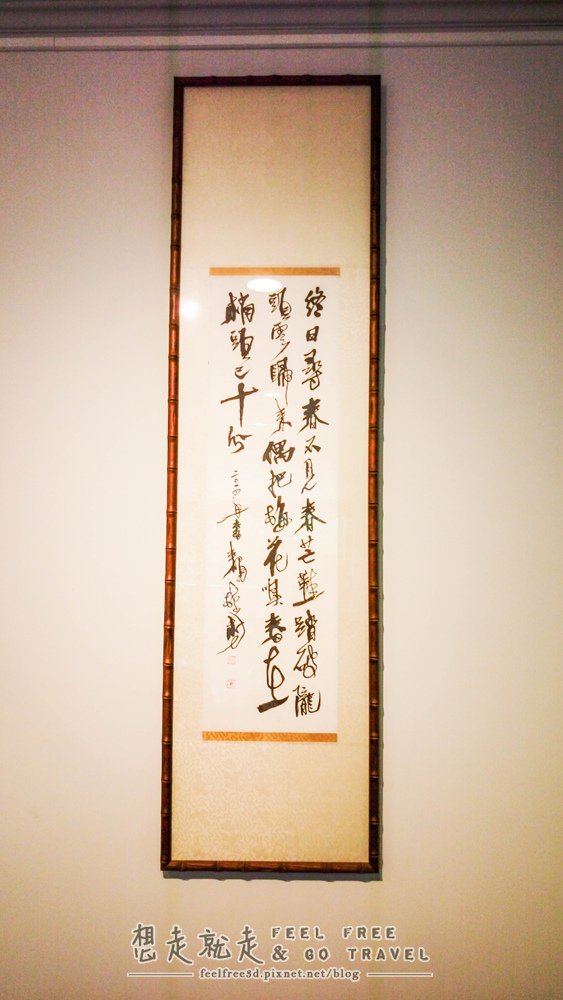 終日尋春不見春芒鞋踏破隴
頭雲歸來偶把梅花嗅春在
梢頭已十分
想走就走
FEEL FREE
& GO TRAVEL
feelfree3d.pixnet.net/blog